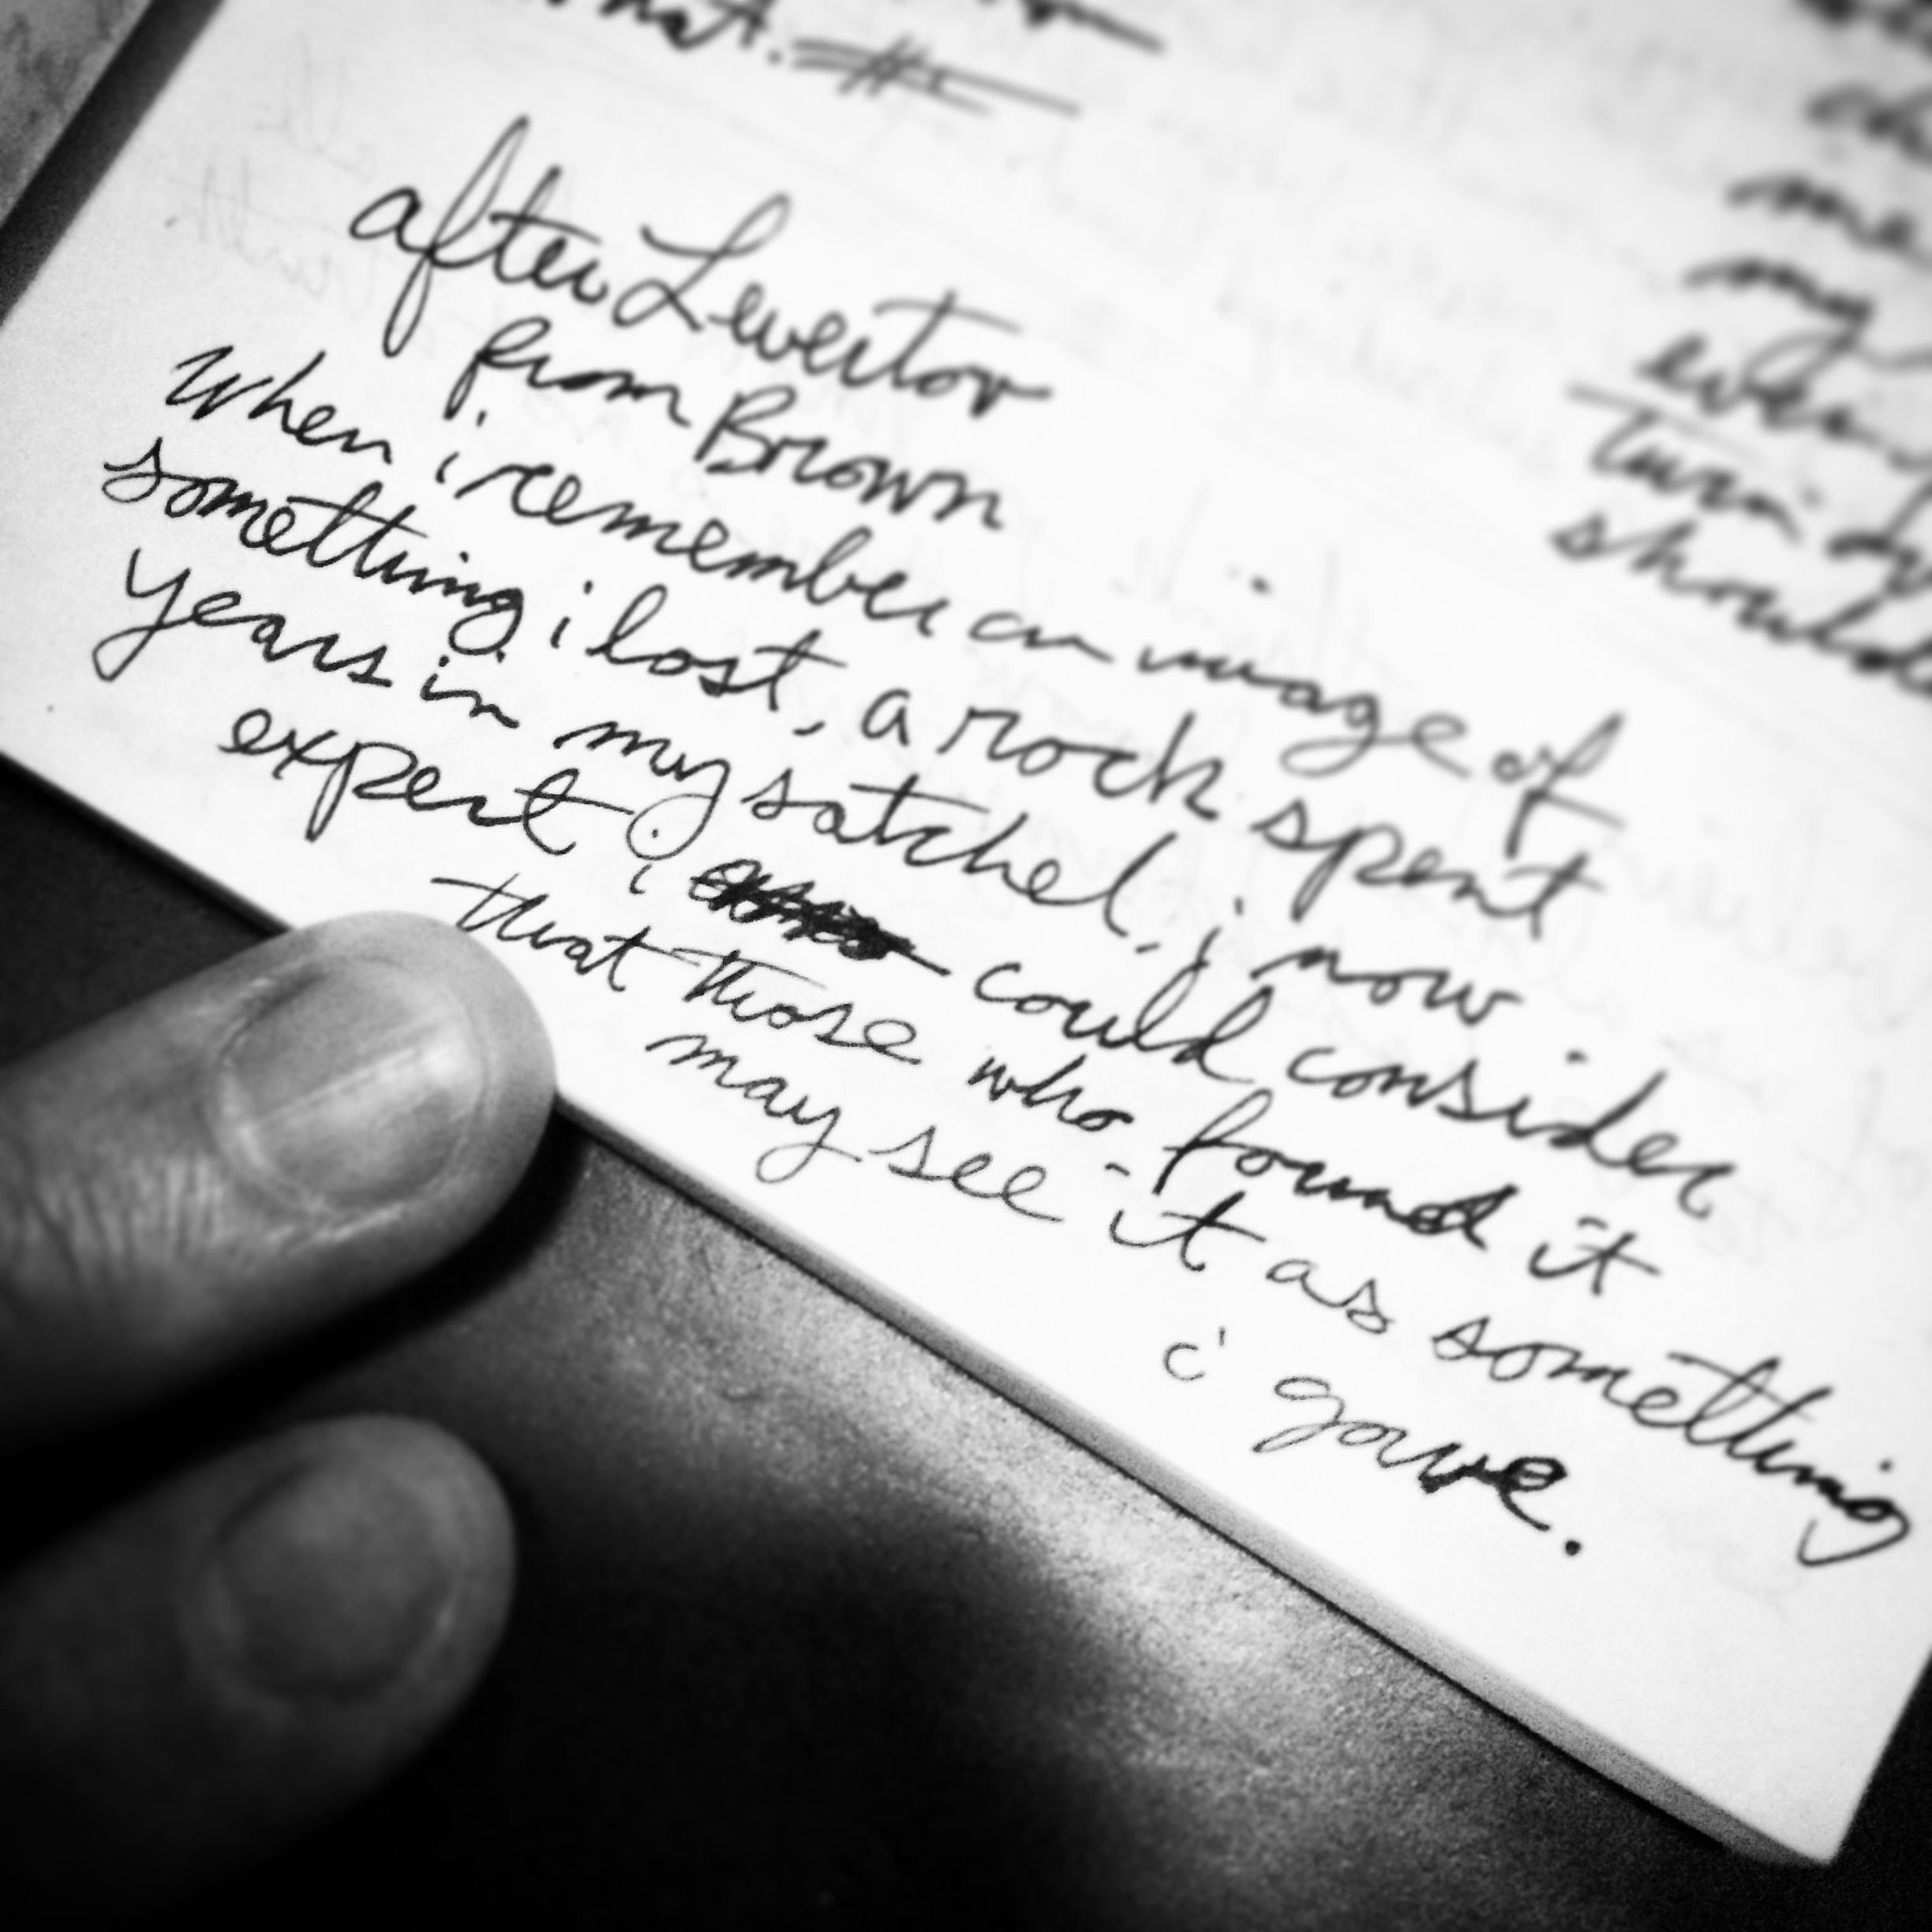 after Levertov
from Brown
When i remember an image of
something i lost, a rock spent
years in my satchel, i now
expert. i could consider
that those who found it
may see it as something
i gave.
me
my
turn